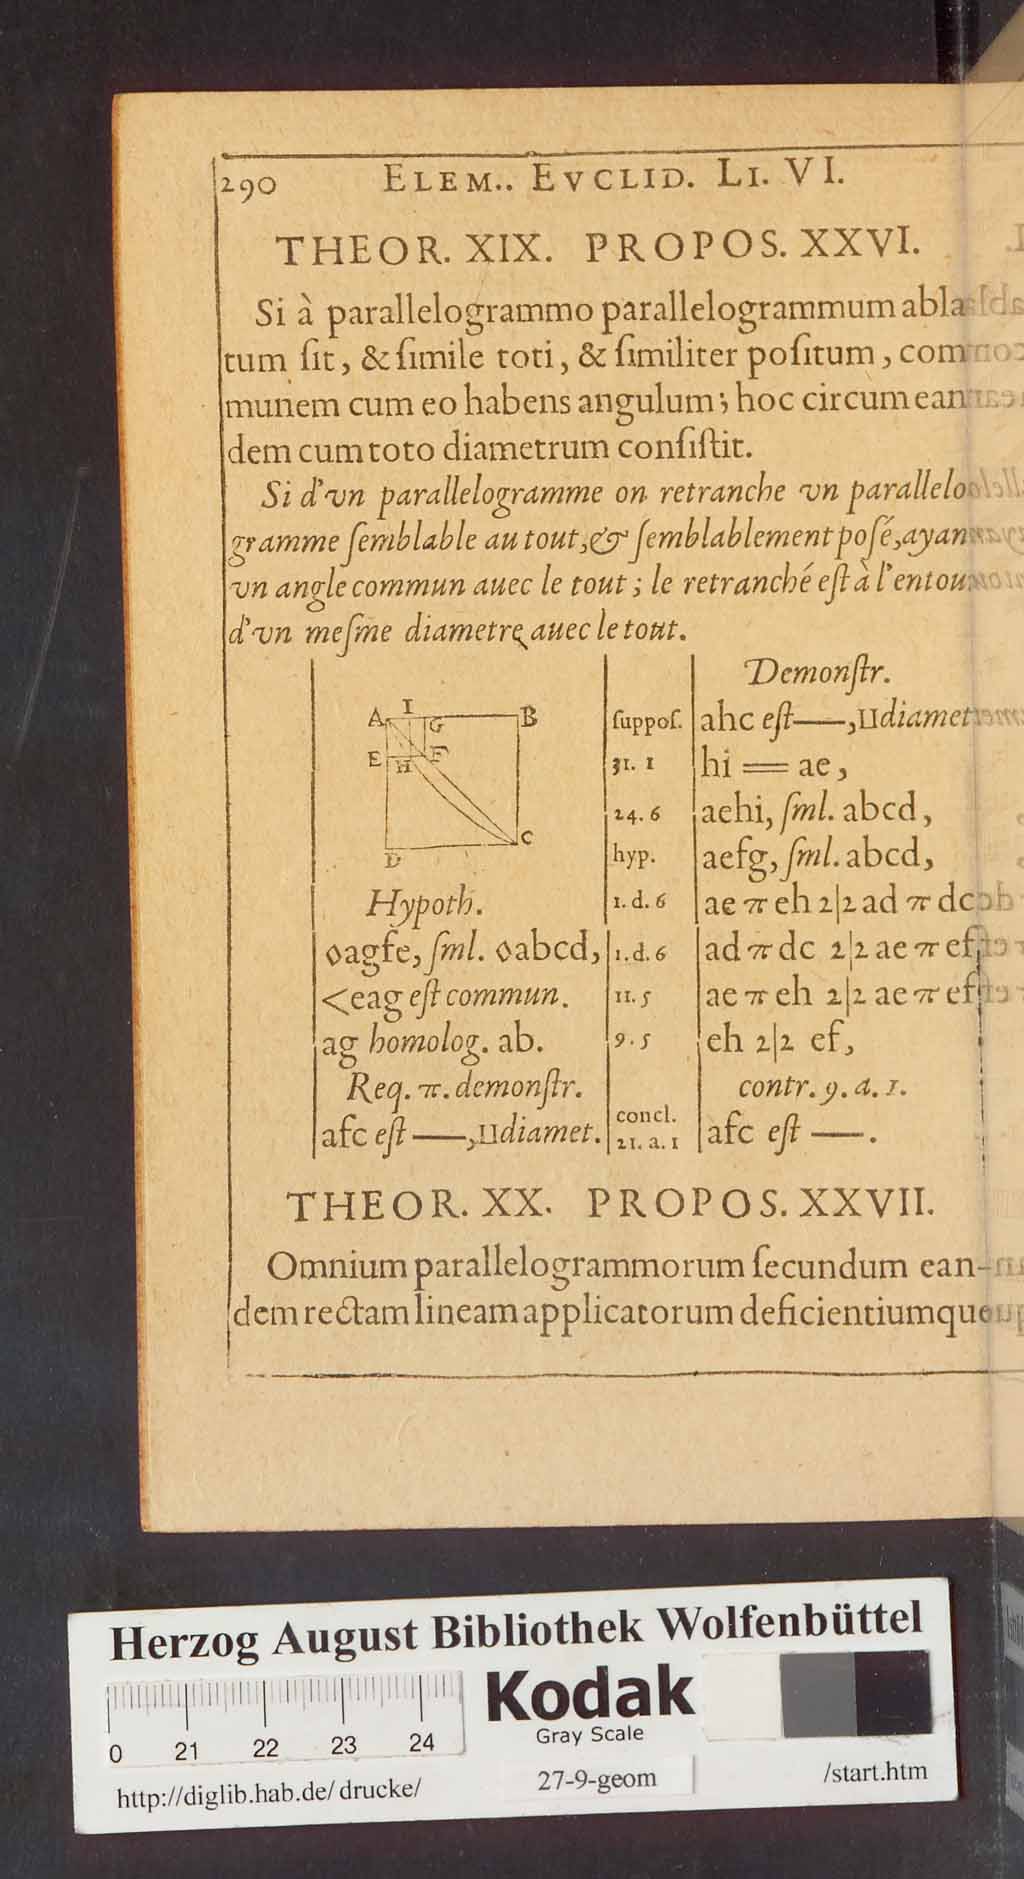 290 ELEM.. EVCLID. LI. VI.
THEOR. XIX. PROPOS. XXVI.
Si à parallelogrammo parallelogrammum abla
tum ſit, & ſimile toti, & ſimiliter poſitum, com
munem cum eo habens angulum; hoc circum ean
dem cum toto diametrum conſiſtit.
Si d'vn parallelogramme on retranche vn parallelo
gramme ſemblable au tout, & ſemblablement poſé, ayan
vn angle commun auec le tout; le retranché eſt à l'entou
d'vn meſme diametre auec le tout.
A I G B
E H F
D C
Hypoth.
◊agfe, ſml. ◊abcd,
<eag eſt commun.
ag homolog. ab.
Req. π. demonſtr.
afc eſt —, ⊔diamet.
Demonſtr.
ſuppoſ. ahc eſt —, ⊔diamet
31. 1 hi = ae,
24. 6 aehi, ſml. abcd,
hyp. aefg, ſml. abcd,
1. d. 6 ae π eh 2|2 ad π dc
1. d. 6 ad π dc 2|2 ae π ef,
11. 5 ae π eh 2|2 ae π ef
9. 5 eh 2|2 ef,
contr. 9. a. 1.
concl.
21. a. 1 afc eſt —.
THEOR. XX. PROPOS. XXVII.
Omnium parallelogrammorum ſecundum ean-
dem rectam lineam applicatorum deficientiumque
Herzog August Bibliothek Wolfenbüttel
Kodak
Gray Scale
0 21 22 23 24
http://diglib.hab.de/drucke/ 27-9-geom /start.htm